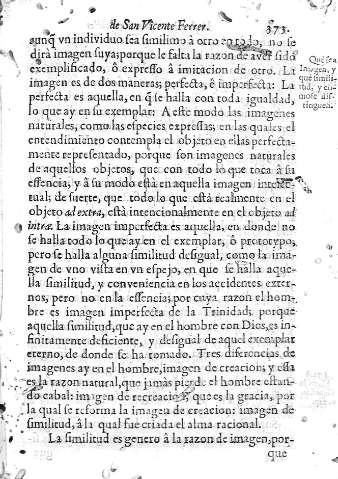 de San Vicente Ferrer. 373.
aunq̃ vn individuo sea similimo à otro en todo, no se
dirà imagen suya; porque le falta la razon de aver sido
exemplificado, ô expresso â imitacion de otro. La
imagen es de dos maneras; perfecta, ê imperfecta: La
perfecta es aquella, en q̃ se halla con toda igualdad,
lo que ay en su exemplar: A este modo las imagenes
naturales, como las especies expressas; en las quales el
entendimiento contempla el objeto en ellas perfecta-
mente representado, porque son imagenes naturales
de aquellos objetos, que con todo lo que toca â su
essencia, y â su modo està en aquella imagen intelec-
tual; de suerte, que todo lo que està realmente en el
objeto ad extra, està intencionalmente en el objeto ad
intra. La imagen imperfecta es aquella, en donde no
se halla todo lo que ay en el exemplar, ô prototypo,
pero se halla alguna similitud desigual, como la ima-
gen de vno vista en vn espejo, en que se halla aque-
lla similitud, y conveniencia en los accidentes exter-
nos, pero no en la essencia; por cuya razon el hom-
bre es imagen imperfecta de la Trinidad; porque
aquella similitud, que ay en el hombre con Dios, es in-
finitamente deficiente, y desigual de aquel exemplar
eterno, de donde se ha tomado. Tres diferencias de
imagenes ay en el hombre, imagen de creacion; y essa
es la razon natural, que jamàs pierde el hombre estan-
do cabal: imagen de recreaciõ, y que es la gracia, por
la qual se reforma la imagen de creacion: imagen de
similitud, â la qual fue criada el alma racional.
La similitud es genero â la razon de imagen, por-
que
Què sea
Imagen, y
què simili-
tud, y en
què se dis-
tinguen.